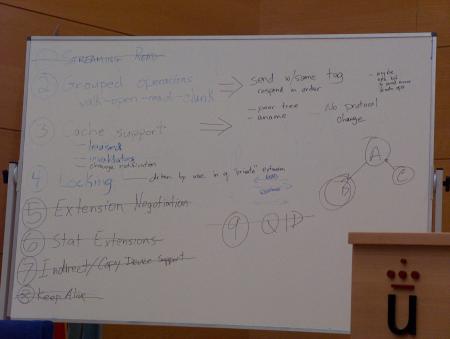 ① Streaming Read
② Grouped operations
walk-open-read-clunk
⇒ send w/same tag
respond in order
③ Cache support
⇒ — poor tree
— aname
No protocol
change
— invalidations
— change notification
4 Locking — driven by use in a "private" extension
⑤ Extension Negotiation
⑥ Stat Extensions
⑦ Indirect/Copy Device Support
⑧ Keep Alive
⑨ QID
A
B
C
u